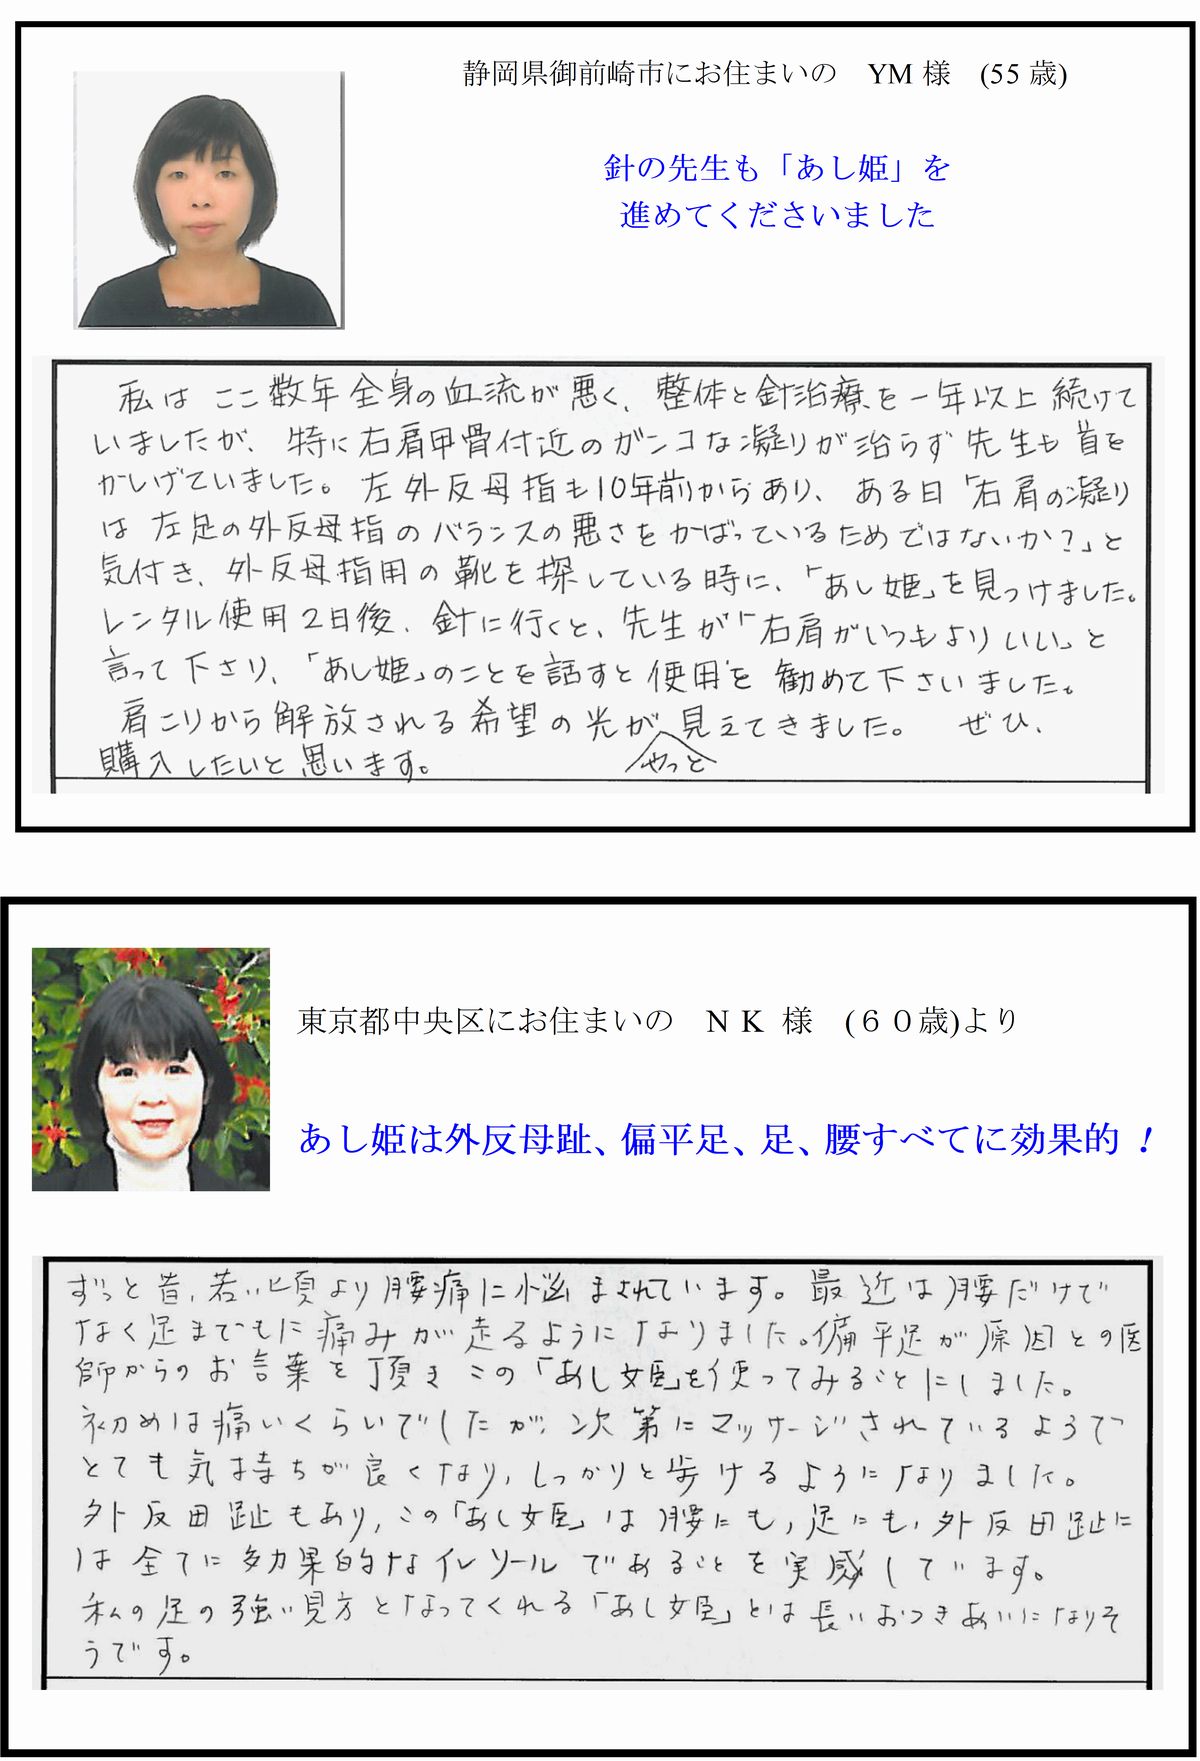 静岡県御前崎市にお住まいの　YM 様　(55 歳)
針の先生も「あし姫」を
進めてくださいました
私は ここ数年 全身の血流が 悪く、整体と針治療を一年以上 続けて
いましたが、特に右肩甲骨付近のガンコな凝りが治らず 先生も 首を
かしげていました。左外反母指も10年前からあり、ある日「右肩の凝り
は 左足の外反母指の バランスの悪さを かばっているためではないか?」と
気付き、外反母指用の 靴を探している時に、「あし姫」を見つけました。
レンタル使用2日後、針に行くと、先生が「右肩がいつもよりいい」と
言って下さり、「あし姫」のことを話すと使用を 勧めて下さいました。
肩こりから解放される希望の光が 見えてきました。　ぜひ、
やっと
購入したいと思います。
東京都中央区にお住まいの　N K 様　(６０歳)より
あし姫は外反母趾、偏平足、足、腰すべてに効果的！
ずっと昔、若い頃より腰痛に悩まされています。最近は腰だけで
なく足までもに痛みが走るようになりました。偏平足が原因との医
師からのお言葉を頂き この「あし姫」を使ってみることにしました。
初めは痛いくらいでしたが、次第にマッサージされているようで
とても気持ちが良くなり、しっかりと歩けるようになりました。
外反母趾もあり、この「あし姫」は腰にも、足にも、外反母趾に
は全てに効果的なインソールであることを実感しています。
私の足の強い見方となってくれる「あし姫」とは長いおつきあいになりそ
うです。